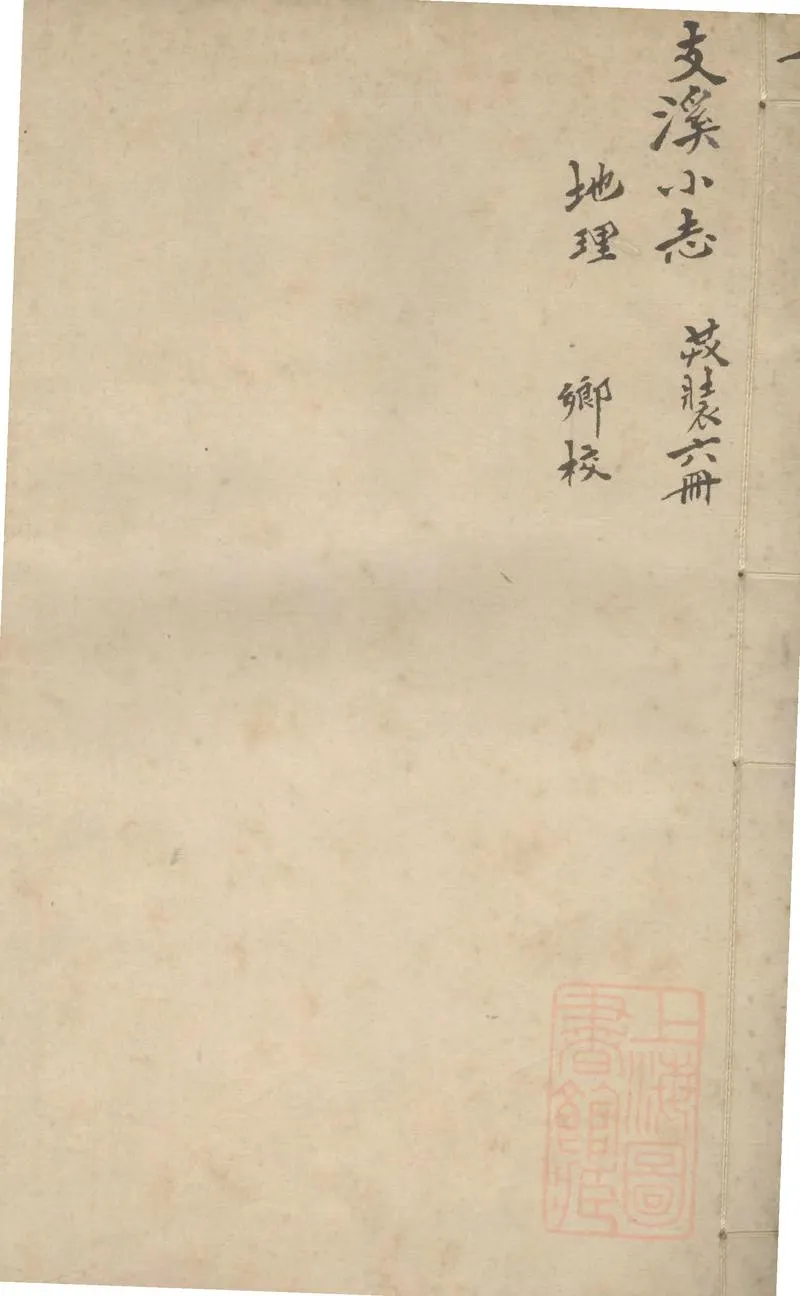 支溪小志 裝六冊
地理 鄉校
上海圖
書館藏